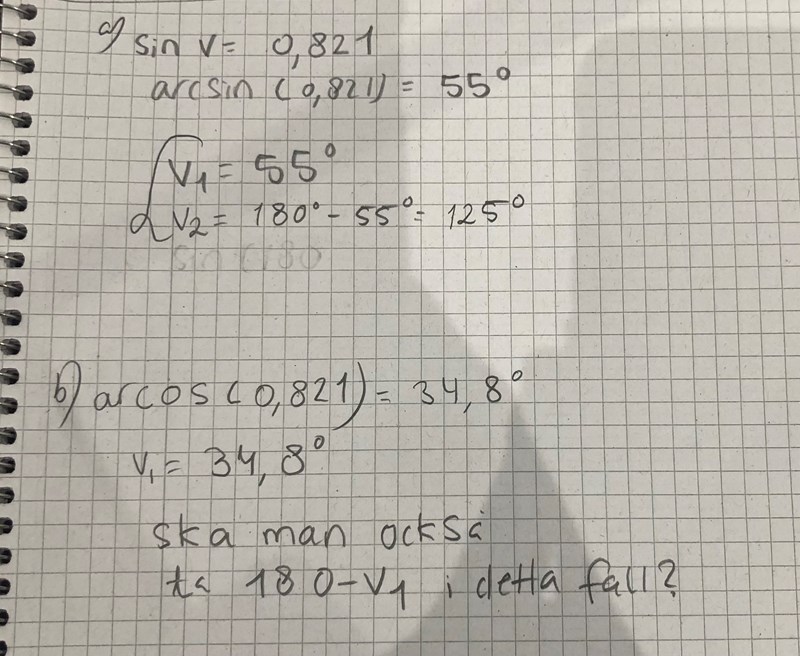 a) sin v = 0,821
arcsin (0,821) = 55°
v1 = 55°
v2 = 180° - 55° = 125°
sin (180
b) arcos (0,821) = 34,8°
v1 = 34,8°
ska man också
ta 180-v1 i detta fall?